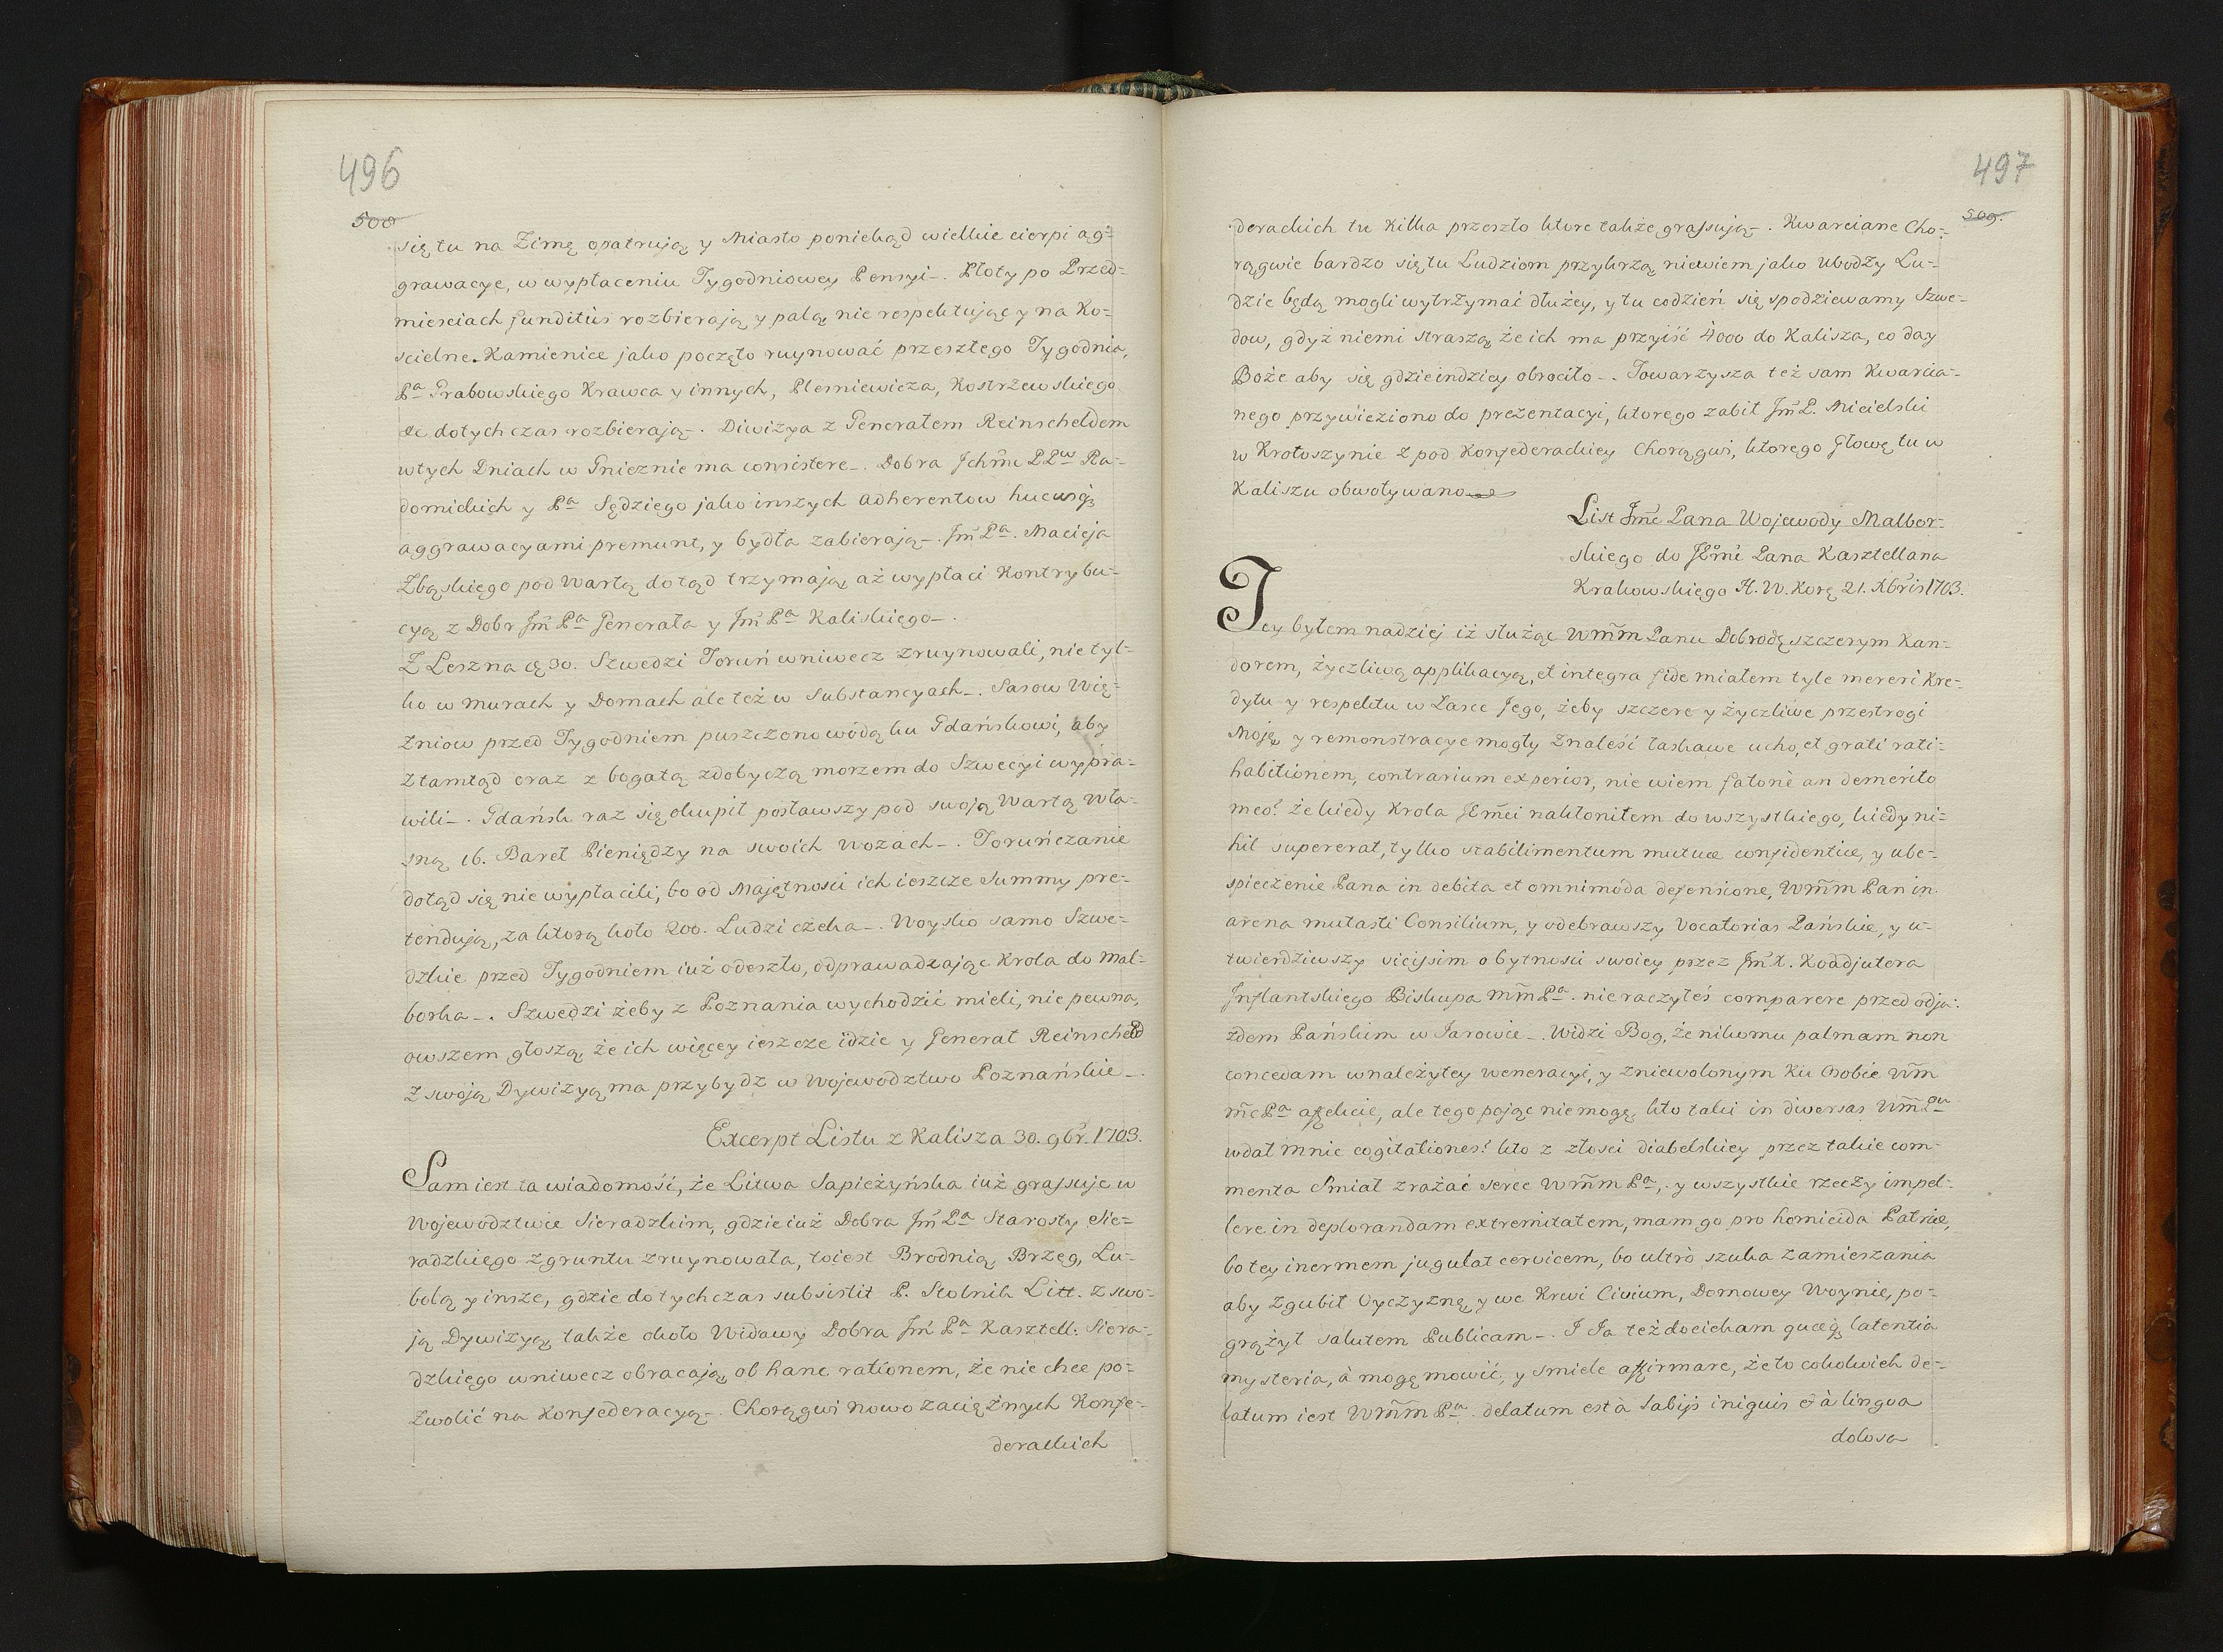 496
500
się tu na Zimę opatrują y Miasto poniekąd wielkie cierpi ag=
grawacye, w wypłaceniu Tygodniowey Pensyi_. Płoty po Przed=
miesciach funditùs rozbierają y palą nie respektując y na Ko=
scielne. Kamienice jako poczęto ruynować przeszłego Tygodnia,
Pa Grabowskiego Krawca y innych, Plesniewicza, Kostrzewskiego
&c dotychczas rozbierają_. Diwizya z Generałem Reinscheldem
wtych Dniach w Gnieznie ma consistere_. Dobra Ichm̃c PPw Ra=
domickich y Pa Sędziego jako inszych adherentow hucusq̃
aggrawacyami premunt, y bydła zabierają_. Jm̃ Pa. Macieja
Zbąskiego pod Wartą dotąd trzymają, aż wypłaci Kontrybu=
cyą z Dobr Jm̃ Pa Generała y Jm̃ Pa Kaliskiego_.
Z Leszna 30. Szwedzi Toruń wniwecz zruynowali, nie tyl=
ko w Murach y Domach ale też w Substancyach_. Sasow Wię=
zniow przed Tygodniem puszczono wodą ku Gdańskowi, aby
ztamtąd oraz z bogatą zdobyczą morzem do Szwecyi wypra=
wili_. Gdańsk raz się okupił posławszy pod swoją Wartą wła=
sną 16. Bareł Pieniędzy na swoich wozach_. Toruńczanie
dotąd się nie wypłacili, bo od Majętnosci ich ieszcze Summy pre=
tendują, za ktorą koło 200. Ludzi czeka_. Woysko samo Szwe=
dzkie przed Tygodniem iuż odeszło, odprawadzając Krola do Mal=
borka_. Szwedzi żeby z Poznania wychodzić mieli, nie pewna,
owszem głoszą, że ich więcey ieszcze idzie y General Reinscheld
z swoją Dywizyą ma przybydz w Wojewodztwo Poznańskie_.
Excerpt Listu z Kalisza 30. 9br. 1703.
Sam iest ta wiadomość, że Litwa Sapieżyńska iuż grassuje w
Wojewodztwie Sieradzkim, gdzie iuż Dobra Jm̃ Pa Starosty Sie=
radzkiego zgruntu zruynowała, toiest Brodnią, Brzeg, Lu=
bolą y insze, gdzie dotychczas subsistit P. Stolnik Litt. z swo=
ją Dywizyą, także około Widawy Dobra Jm̃ Pa Kasztell: Siera=
dzkiego wniwecz obracają, ob hanc rationem, że nie chce po=
zwolić na Konfederacyą_. Chorągwi nowo zaciążnych Konfe=
derackich
497
509.
derackich tu kilka przeszło ktore także grassują_. Kwarciane Cho=
rągwie bardzo się tu Ludziom przykrzą, niewiem jako Ubodzy Lu=
dzie będą mogli wytrzymać dłużey, y tu codzień się spodziewamy Szwe=
dow, gdyż niemi straszą, że ich ma przyiść 4000 do Kalisza, co day
Boże aby się gdzieindziey obrociło_. Towarzysza też sam Kwarcia=
nego przywieziono do prezentacyi, ktorego zabił Jm̃ P. Micielski
w Krotoszynie z pod Konfederackiey Chorągwi, ktorego Głowę tu w
Kaliszu obwoływano
List Jm̃c Pana Wojewody Malbor=
skiego do JEm̃i Pana Kasztellana
Krakowskiego H. W. Korę 21. Xbris 1703.
Tey byłem nadziej iż służąc Wm̃m Panu Dobrodę szczerym Kan=
dorem, życzliwą applikacyą, et integra fide miałem tyle mereri Kre=
dytu y respektu w Łasce Jego, żeby szczere y życzliwe przestrogi
Moję, y remonstracye mogły znaleść łaskawe ucho, et grati rati=
habitionem, contrarium experior, nie wiem fatonè an demerito
meo? że kiedy Krola JEm̃ci nakłoniłem do wszystkiego, kiedy ni=
hil supererat, tylko stabilimentum mutuæ confidentiæ, y ube=
spieczenie Pana in debita et omnimoda defensione, Wm̃m Pan in
arena mutasti Consilium, y odebrawszy Vocatorias Pańskie, y u=
twierdziwszy vicissim o bytnosci swoiey przez Jm̃ X. Koadjutera
Inflantskiego Biskupa Mm̃ Pa. nie raczyłeś comparere przed odja=
zdem Pańskim w Jarowie_. Widzi Bog, że nikomu palmam non
concedam wnależytey weneracyi, y zniewolonym Ku Osobie Wm̃
m̃c Pa affekcie, ale tego pojąc niemogę, kto taki in diversas Wm̃Pu
wdał Mnie cogitationes? kto z złosci diabelskiey przez takie com=
menta Smiał zrażać serce Wm̃m Pa, y wszystkie rzeczy impel=
lere in deplorandam extremitatem, mam go pro homicida Patriæ,
bo tey inermem jugulat cervicem, bo ultrò szuka zamieszania
aby zgubił Oyczyznę, y we Krwi Civium, Domowey Woynie, po=
grążył salutem Publicam_. I Ja też docieham quæq̃ latentia
mysteria, à mogę mowić, y smiele affirmare, że to cokolwiek de=
latum iest Wm̃m Pa. delatum est à labijs iniquis & à lingva
dolosa